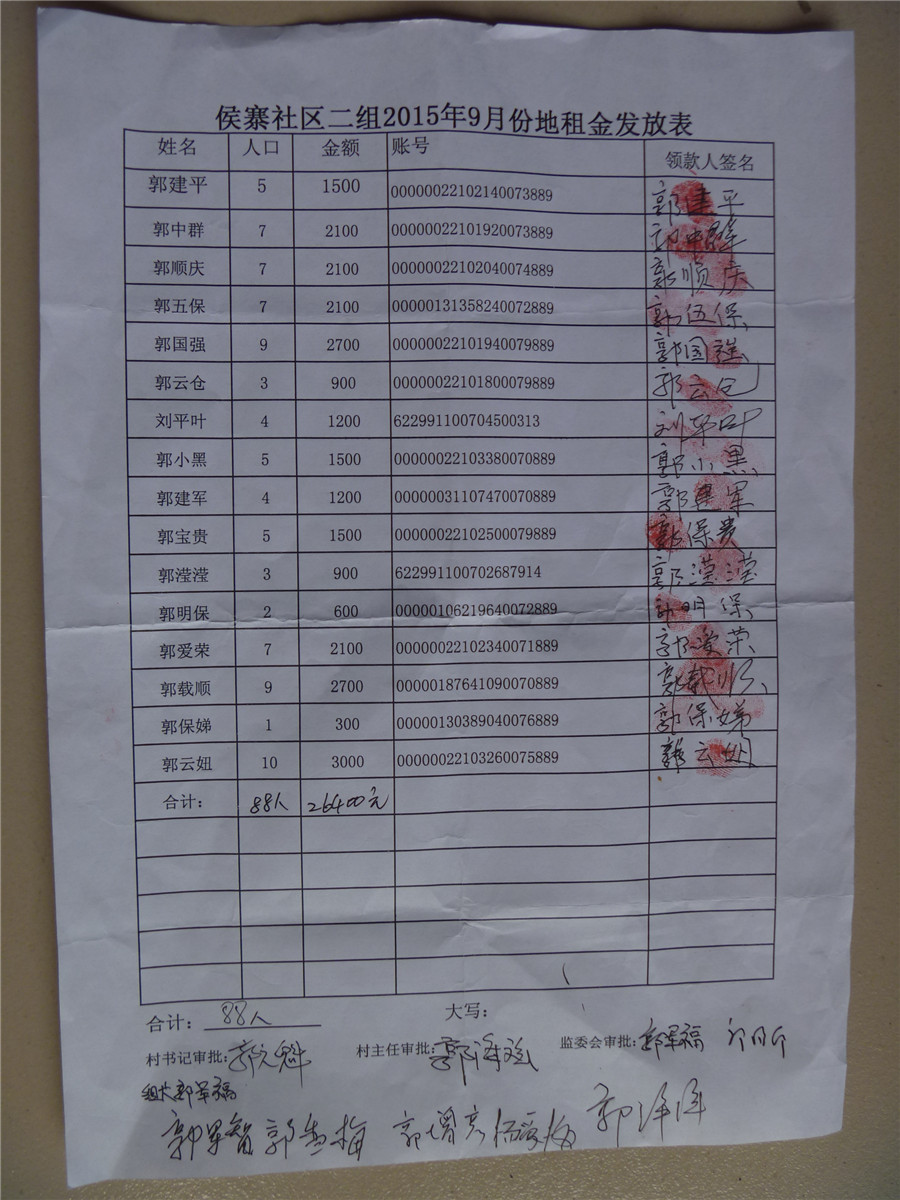 侯寨社区二组2015年9月份地租金发放表
姓名 人口 金额 账号 领款人签名
郭建平 5 1500 00000022102140073889 郭建平
郭中群 7 2100 00000022101920073889 郭中群
郭顺庆 7 2100 00000022102040074889 郭顺庆
郭五保 7 2100 00000131358240072889 郭伍保
郭国强 9 2700 00000022101940079889 郭国强
郭云仓 3 900 00000022101800079889 郭云仓
刘平叶 4 1200 622991100704500313 刘平叶
郭小黑 5 1500 00000022103380070889 郭小黑
郭建军 4 1200 00000031107470070889 郭建军
郭宝贵 5 1500 00000022102500079889 郭保贵
郭滢滢 3 900 622991100702687914 郭滢滢
郭明保 2 600 00000106219640072889 郭明保
郭爱荣 7 2100 00000022102340071889 郭爱荣
郭载顺 9 2700 00000187641090070889 郭载顺
郭保娣 1 300 00000130389040076889 郭保娣
郭云妞 10 3000 00000022103260075889 郭云
合计: 88人 26400元
合计: 88人 大写:
村书记审批: 郭文魁 村主任审批: 郭海 监委会审批: 郭军福
组长郭军福
郭军智 郭 梅 郭增亮 郭